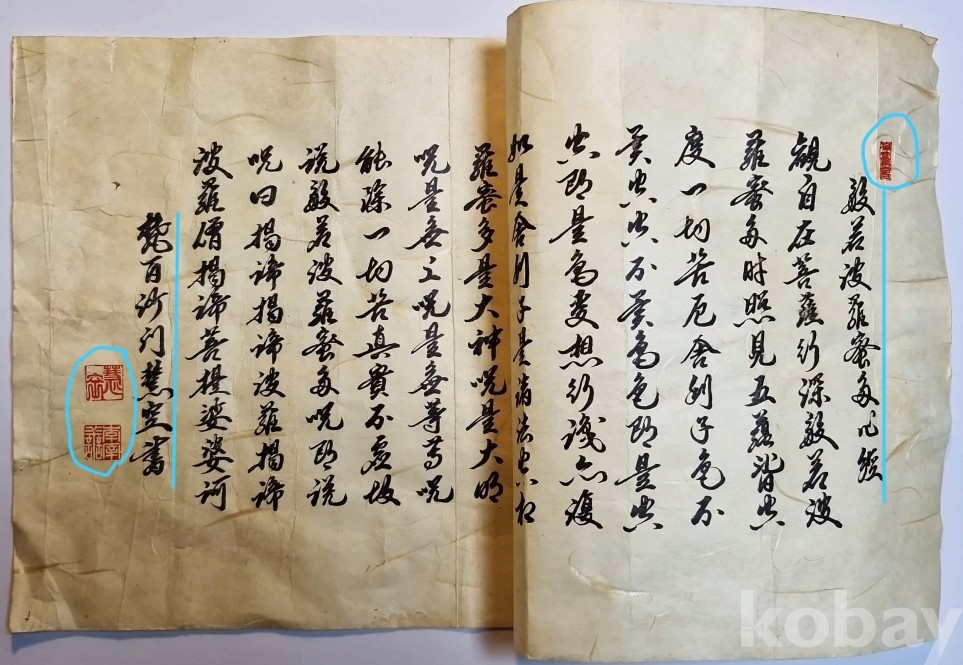 般若波羅蜜多心經
觀自在菩薩行深般若波
羅蜜多時照見五蘊皆空
度一切苦厄舍利子色不
異空空不異色色即是空
空即是色受想行識亦復
如是舍利子是諸法空相
羅密多是大神呪是大明
呪是無上呪是無等等呪
能除一切苦真實不虛故
説般若波羅蜜多呪即説
呪曰揭諦揭諦波羅揭諦
波羅僧揭諦菩提娑婆訶
梵百沙门慧空書
kobay